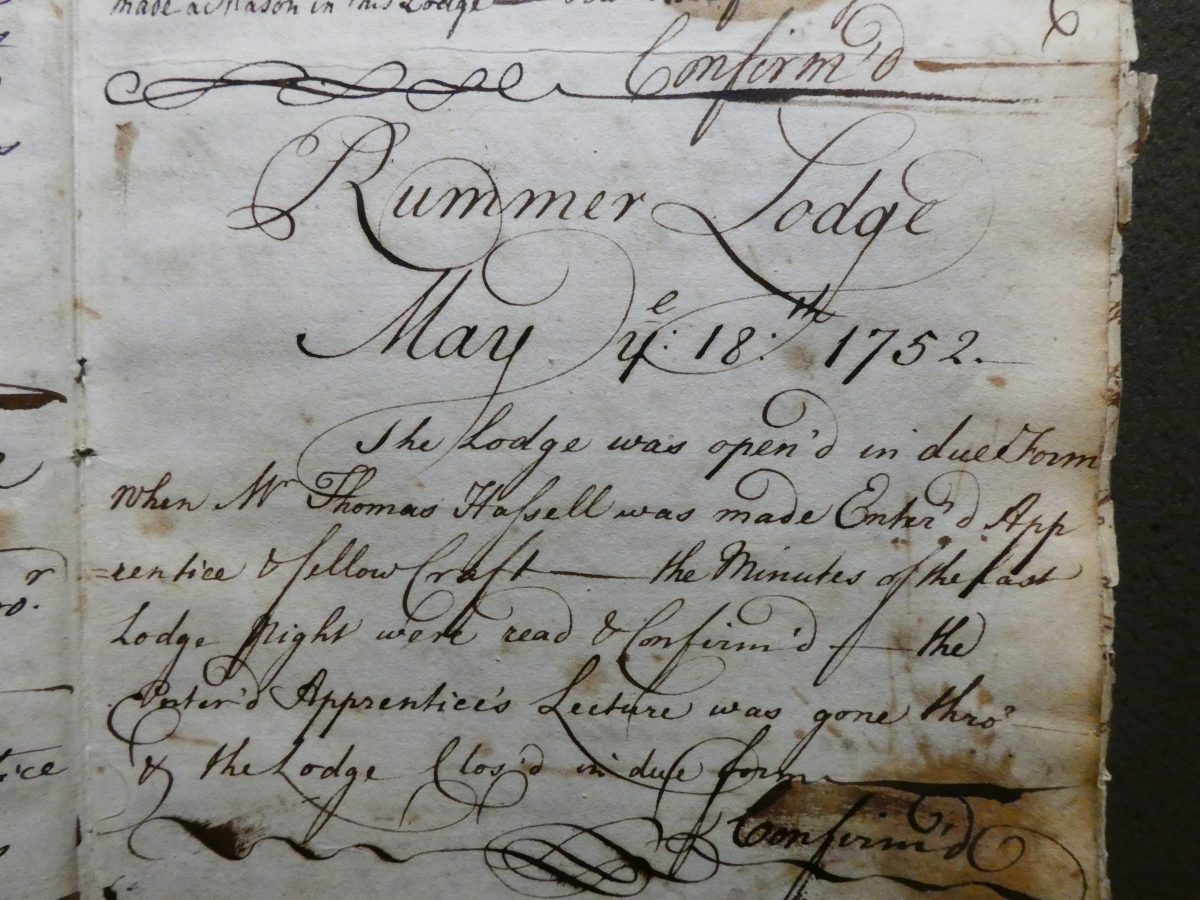 made a Mason in this Lodge
Confirm'd
Rummer Lodge
May yᵉ: 18:ᵗʰ 1752.
The Lodge was open'd in due Form
when Mʳ Thomas Haſsell was made Enter'd App
=rentice & fellow Craft — the Minutes of the last
Lodge Night were read & Confirm'd — the
Enter'd Apprentice's Lecture was gone thro'
& the Lodge Clos'd in due form
Confirm'd
r
ro.
tice